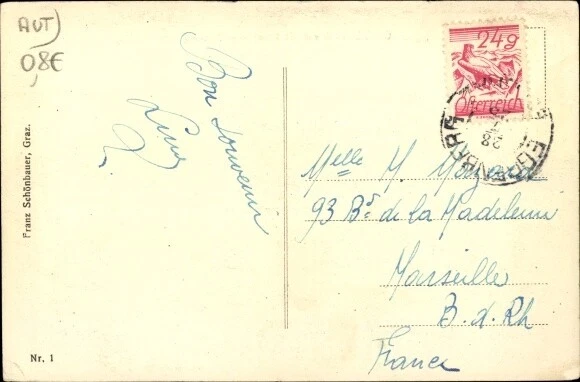 AUT
0,8€
Bon souvenir
24g
Österreich
EGGENBERG
28
Melle M.
93 Bd de la Madeleine
Marseille
B. d. Rh
France
Franz Schönbauer, Graz.
Nr. 1